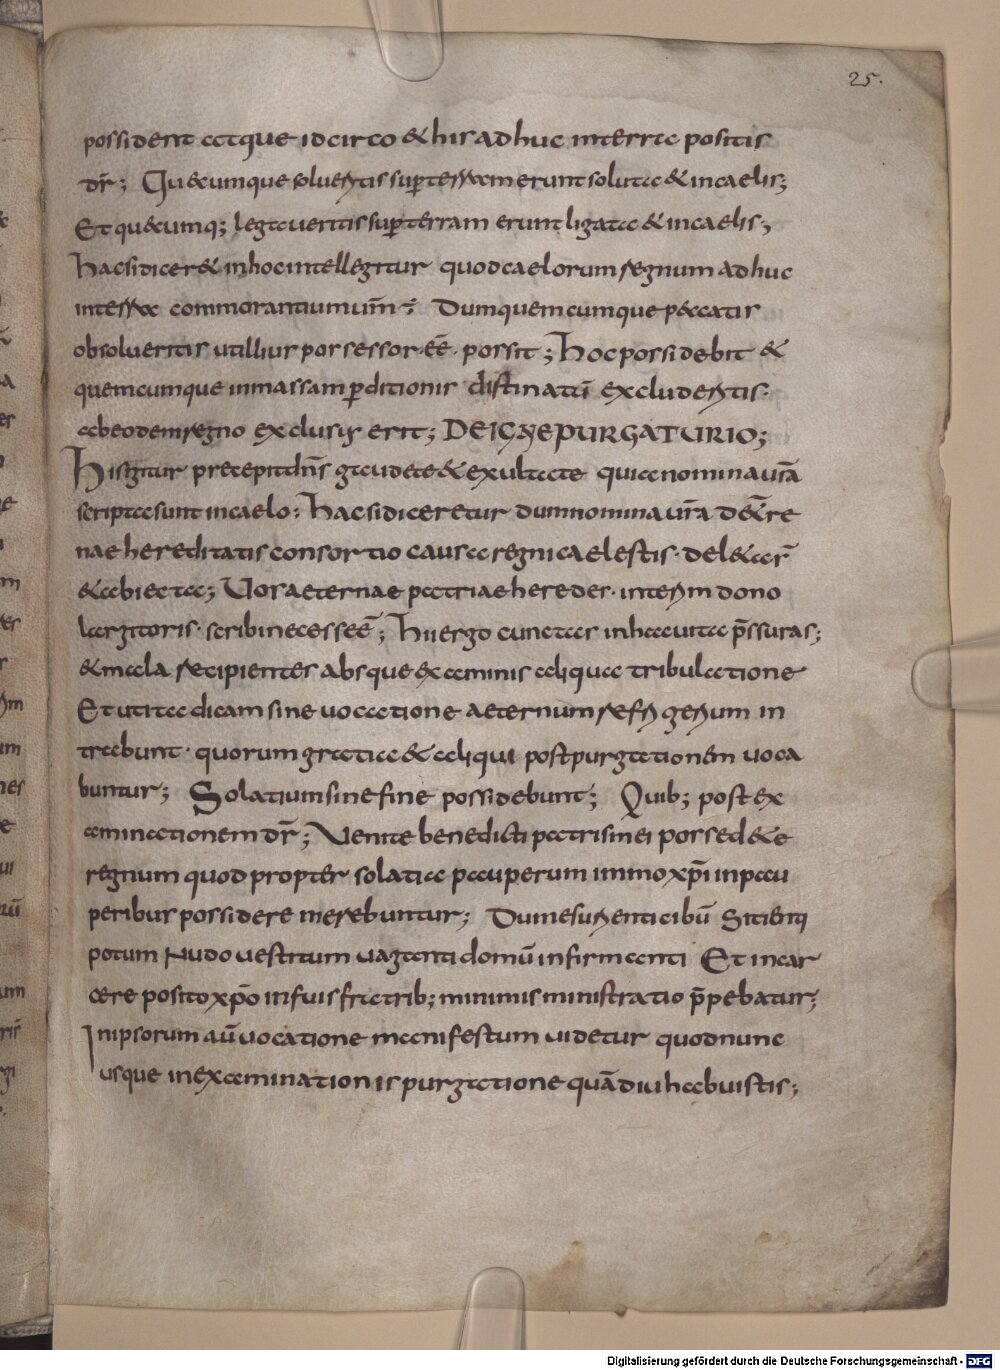 25.
possident atque idcirco & his adhuc interra positis
dr̄; Quecumque solueritis sup terram erunt soluta & incaelis;
Et quecumq; legaueritis sup terram erunt ligata & incaelis;
Hacsidicer& inhocintellegitur quodcaelorum regnum adhuc
interra commorantiumum̄; Dumquemcumque peccatis
obsolueritis utillius possessor ēē possit; Hocpossidebit &
quemcumque inmassam pditionis distinatū excluderitis.
abeodemregno exclusus erit; DEIGNEPURGATURIO;
Hisigitur precepitdn̄s gaudete & exultate quiaenominaur̄a
scriptasunt incaelo; Hacsidiceretur dumnominaur̄a
nae hereditatis consortio causa regnicaelestis. delear̄
&abiecta; Uosaeternae patriae heredes. interim dono
largitoris. scribinecesseē; Hiiergo cunctas inhacuita p̄ssuras;
&mala recipientes absque examinis aliqua tribulatione
Et utita dicam sine uocatione aeternum refrigerium in
trabunt. quorum gratia & aliqui postpurgationem uoca
buntur; Solatiumsinefine possidebunt; Quib; post ex
aminationem dr̄; Venite benedicti patrismei possed&e
regnum quod propter solatia pauperum immo xp̄i inpau
peribus possidere merebuntur; Dumesurienticibū Sitienti
potum Nudo uestitum uaganti domū infirmanti Et incar
cere posito xp̄o insuis fratrib; minimis ministratio p̄pebatur;
Inipsorum aū uocatione manifestum uidetur quodnunc
usque inexaminationis purgatione quādiu habuistis;
Digitalisierung gefördert durch die Deutsche Forschungsgemeinschaft - DFG